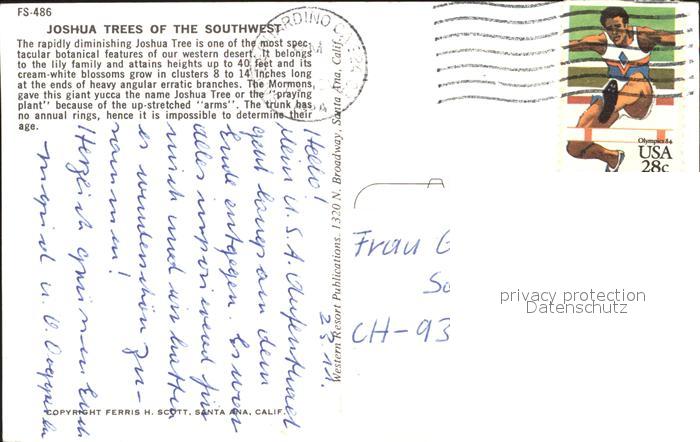 FS-486
JOSHUA TREES OF THE SOUTHWEST
The rapidly diminishing Joshua Tree is one of the most spec-
tacular botanical features of our western desert. It belongs
to the lily family and attains heights up to 40 feet and its
cream-white blossoms grow in clusters 8 to 14 inches long
at the ends of heavy angular erratic branches. The Mormons,
gave this giant yucca the name Joshua Tree or the "praying
plant" because of the up-stretched "arms". The trunk has
no annual rings, hence it is impossible to determine their
age.
Hello!
Mein U.S.A. Aufenthalt
geht langsam dem
Ende entgegen. Es war
alles imposierend für
mich und wir hatten
es wunderschön zu-
sammen!
Herzlich grüssen Euch
COPYRIGHT FERRIS H. SCOTT, SANTA ANA, CALIF.
Western Resort Publications, 1320 N. Broadway, Santa Ana, Calif.
Olympics 84
USA
28c
Frau G
CH-93
privacy protection
Datenschutz